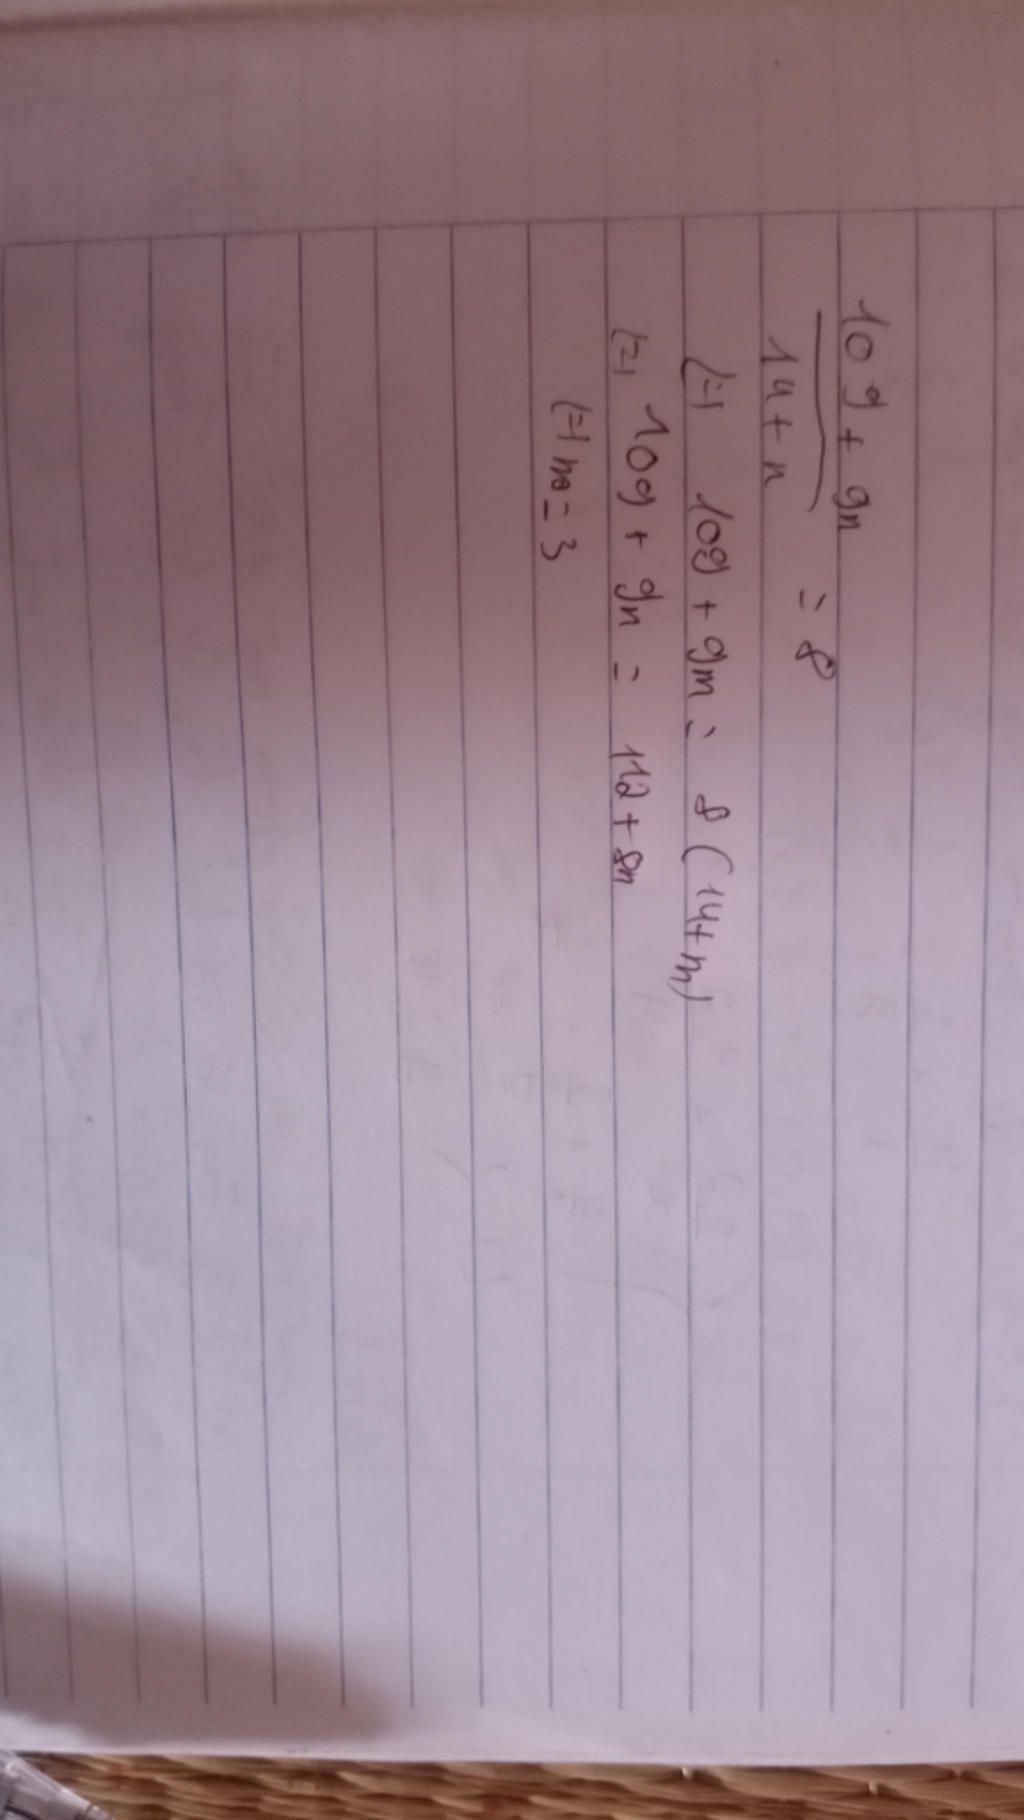 109 + 9n
14 + n
= 8
(=) 109 + 9n = 8 (14+n)
(=) 109 + 9n = 112 + 8n
(=) n = 3